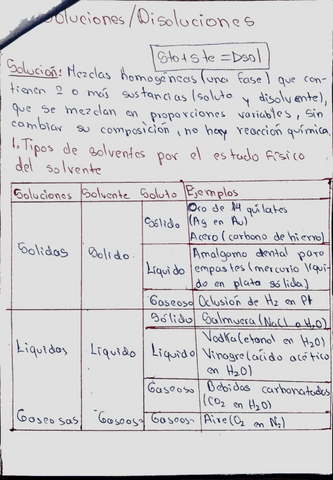 Soluciones/Disoluciones
Sto + Ste = Dsol
Solución: Mezclas Homogéneas (una fase) que con-
tienen 2 o más sustancias (soluto y disolvente),
que se mezclan en proporciones variables, sin
cambiar su composición, no hay reacción química.
1. Tipos de solventes por el estado físico
del solvente
Soluciones Solvente Soluto Ejemplos
Solidas Solido Sólido Oro de 14 quilates
(Ag en Au)
Acero (carbono de hierro)
Líquido Amalgama dental para
empastes (mercurio líqui-
do en plata sólida)
Gaseoso Oclusión de H2 en Pt
Líquidas Líquido Sólido Salmuera (NaCl a H2O)
Líquido Vodka (etanol en H2O)
Vinagre (acido acético
en H2O)
Gaseoso Bebidas carbonatadas
(CO2 en H2O)
Gaseosas Gaseoso Gaseoso Aire (O2 en N2)